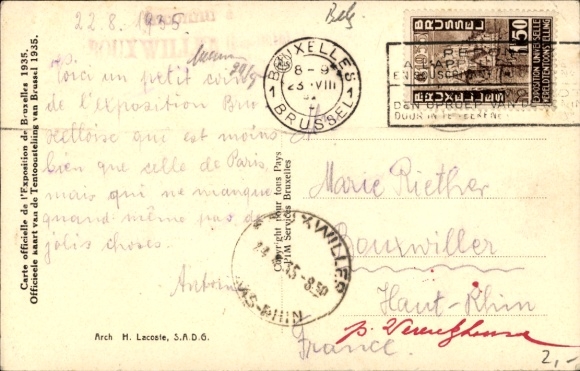 22.8.1935
Voici un petit
de l'Exposition Bru
xelloise qui est moins
bien que celle de Paris,
mais qui ne manque
quand même pas de
jolis choses.
Antoine
Arch H. Lacoste, S.A.D.G.
Carte officielle de l'Exposition de Bruxelles 1935.
Officieele kaart van de Tentoonstelling van Brussel 1935.
Copyright pour tous Pays
PIM Services Bruxelles
Belg
BRUXELLES
1 1
8-9
23 VIII
BRUSSEL
BRUSSEL
BRUXELLES
1,50
EXPOSITION UNIVERSELLE
WERELDTENTOONSTELLING
BOUXWILLER
BAS-RHIN
Marie Riether
Bouxwiller
Haut-Rhin
France.
2,-